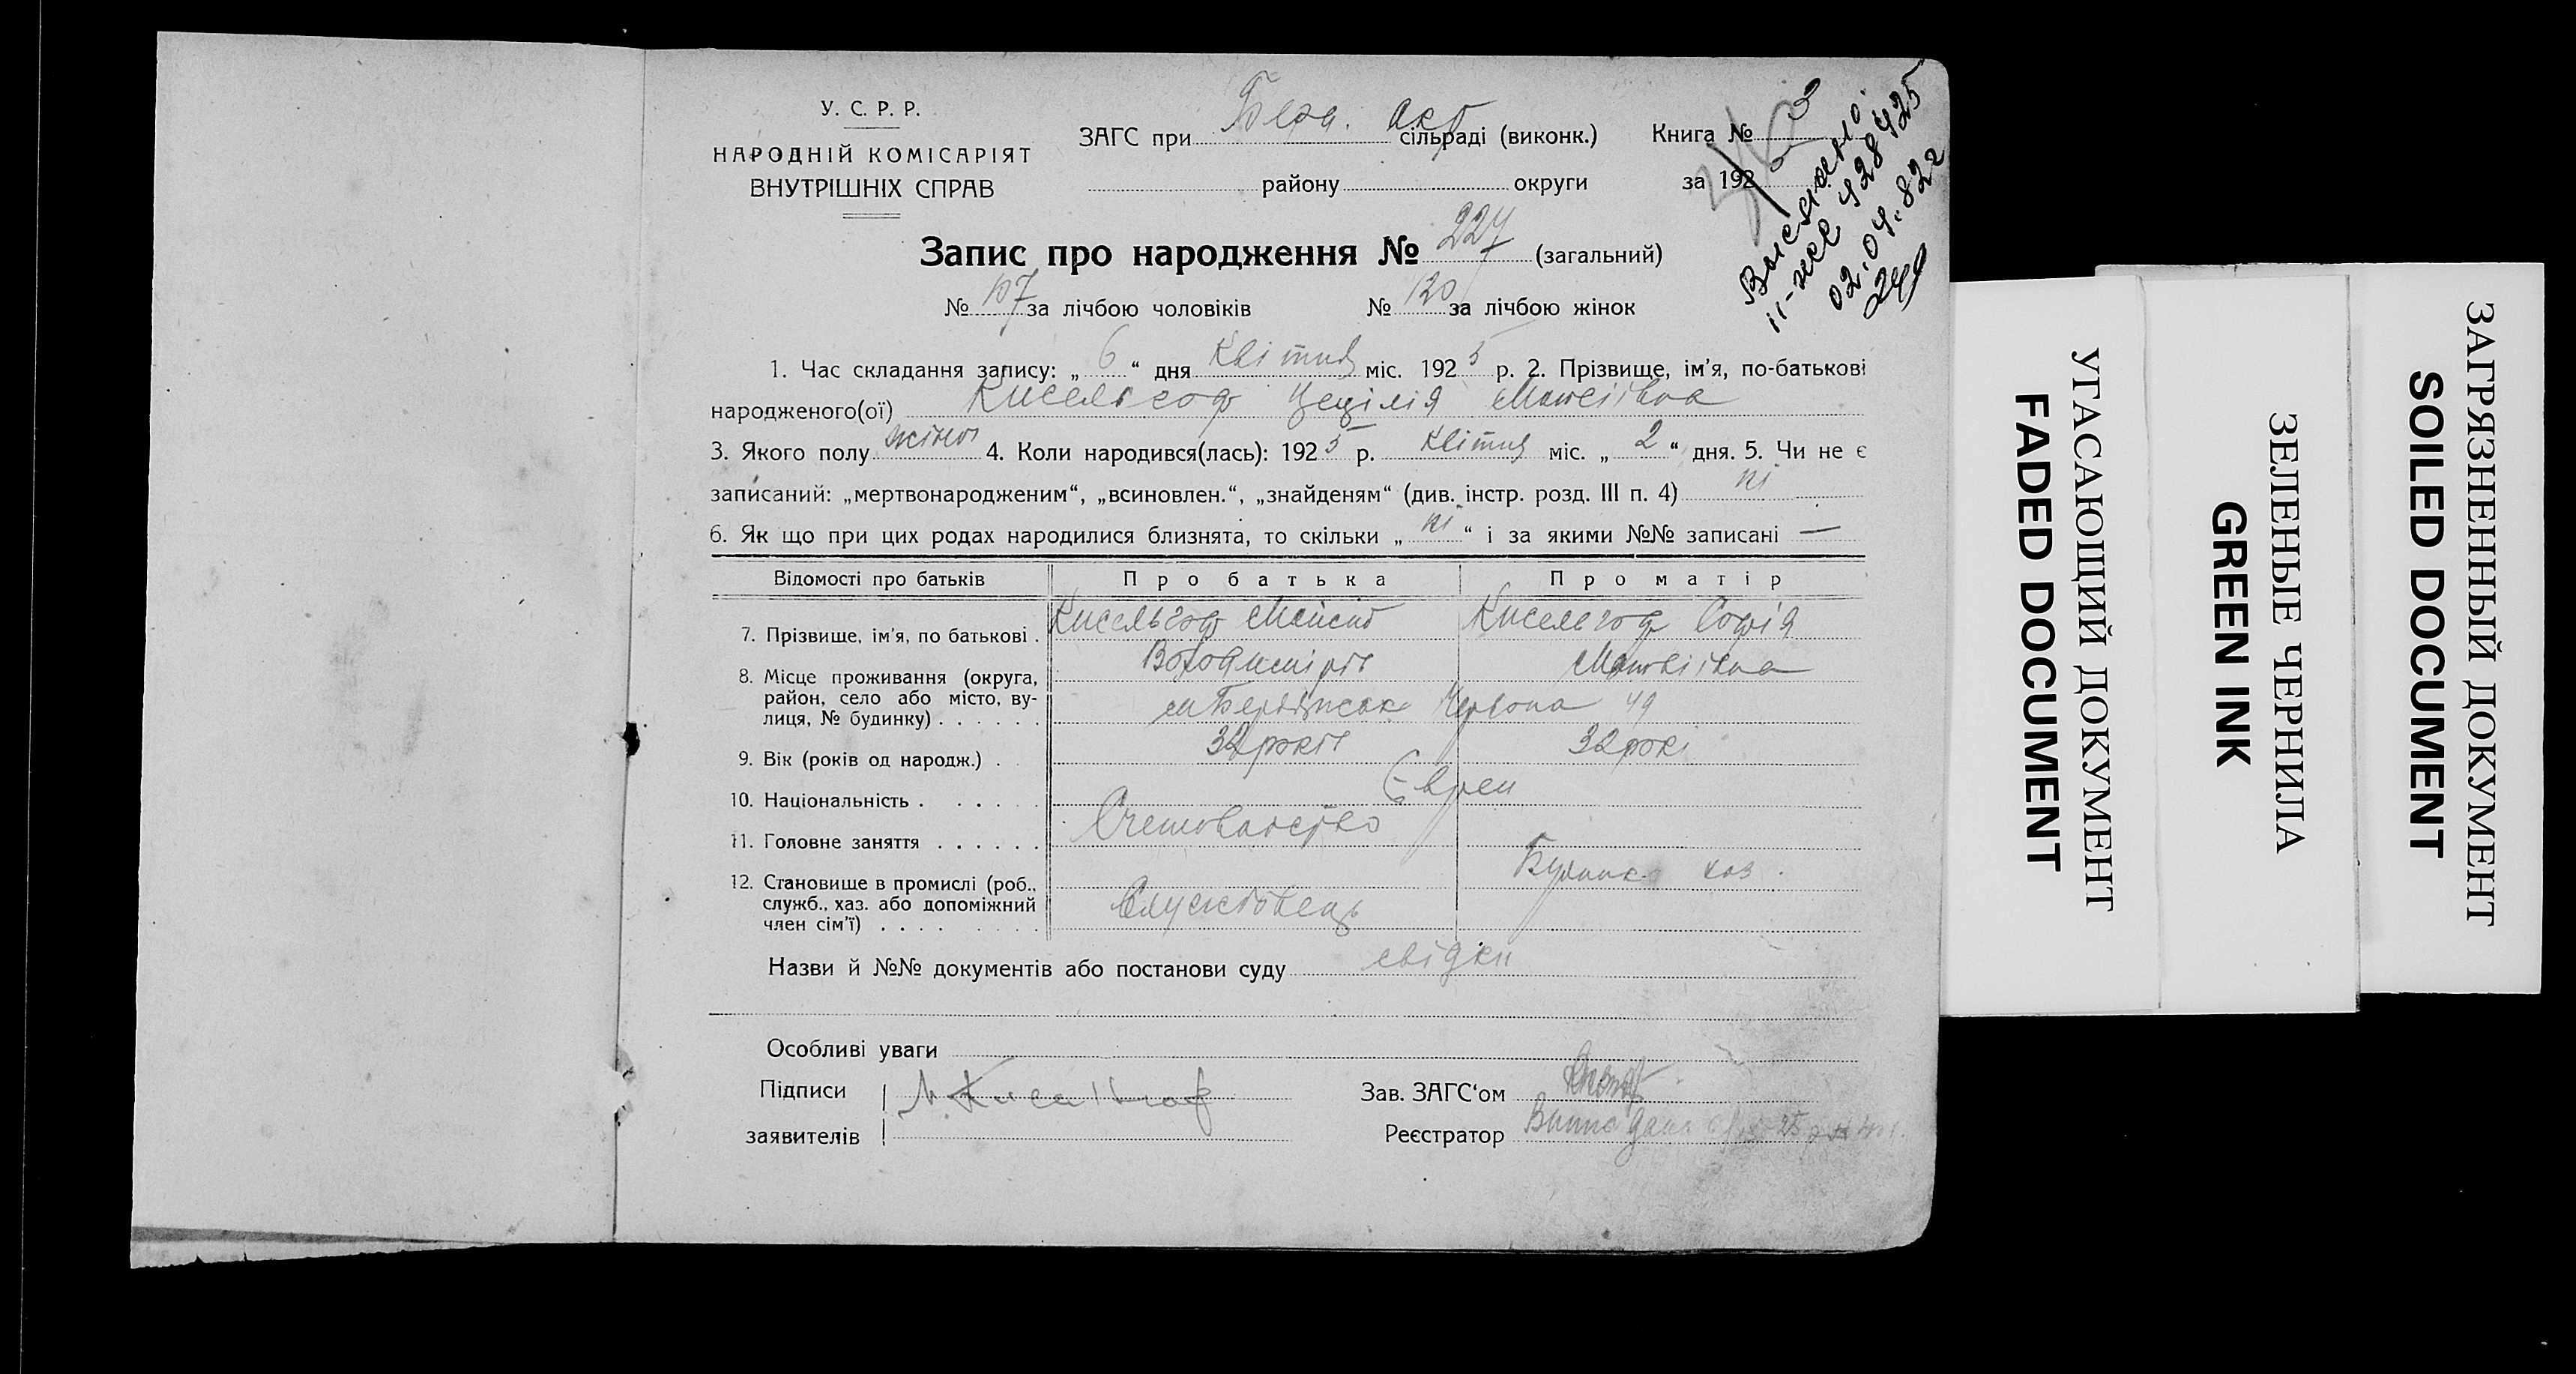 У. С. Р. Р.
НАРОДНІЙ КОМІСАРІЯТ
ВНУТРІШНІХ СПРАВ
ЗАГС при Берд. Окр сільраді (виконк.)
району округи
Книга № 3
за 192 5
Запис про народження № 227 (загальний)
№ 107 за лічбою чоловіків № 120 за лічбою жінок
1. Час складання запису: „ 6 “ дня Квітня міс. 192 5 р. 2. Прізвище, ім’я, по-батькові
народженого(ої) Кисельгоф Цецілія Мойсіївна
3. Якого полу жіноч 4. Коли народився(лась): 192 5 р. Квітня міс. „ 2 “ дня. 5. Чи не є
записаний: „мертвонародженим“, „всиновлен.“, „знайденям“ (див. інстр. розд. III п. 4) ні
6. Як що при цих родах народилися близнята, то скільки „ ні “ і за якими №№ записані —
Відомості про батьків Про батька Про матір
7. Прізвище, ім’я, по батькові . Кисельгоф Мойсей Кисельгоф Софія
Володимірів Матвіівна
8. Місце проживання (округа,
район, село або місто, ву-
лиця, № будинку) . . . . . . м Бердянськ Червона 49
9. Вік (років од народж.) . 32 років 32 рокі
10. Національність . . . . . . Євреи
11. Головне заняття . . . . . . Счетоводство
12. Становище в промислі (роб.,
служб., хаз. або допоміжний
член сім’ї) . . . . . . . . Службовець хоз.
Назви й №№ документів або постанови суду свідки
Особливі уваги
Підписи М. Кисельгоф
заявителів
Зав. ЗАГС‘ом
Реєстратор
02.04.82г
УГАСАЮЩИЙ ДОКУМЕНТ
FADED DOCUMENT
ЗЕЛЕНЫЕ ЧЕРНИЛА
GREEN INK
ЗАГРЯЗНЕННЫЙ ДОКУМЕНТ
SOILED DOCUMENT